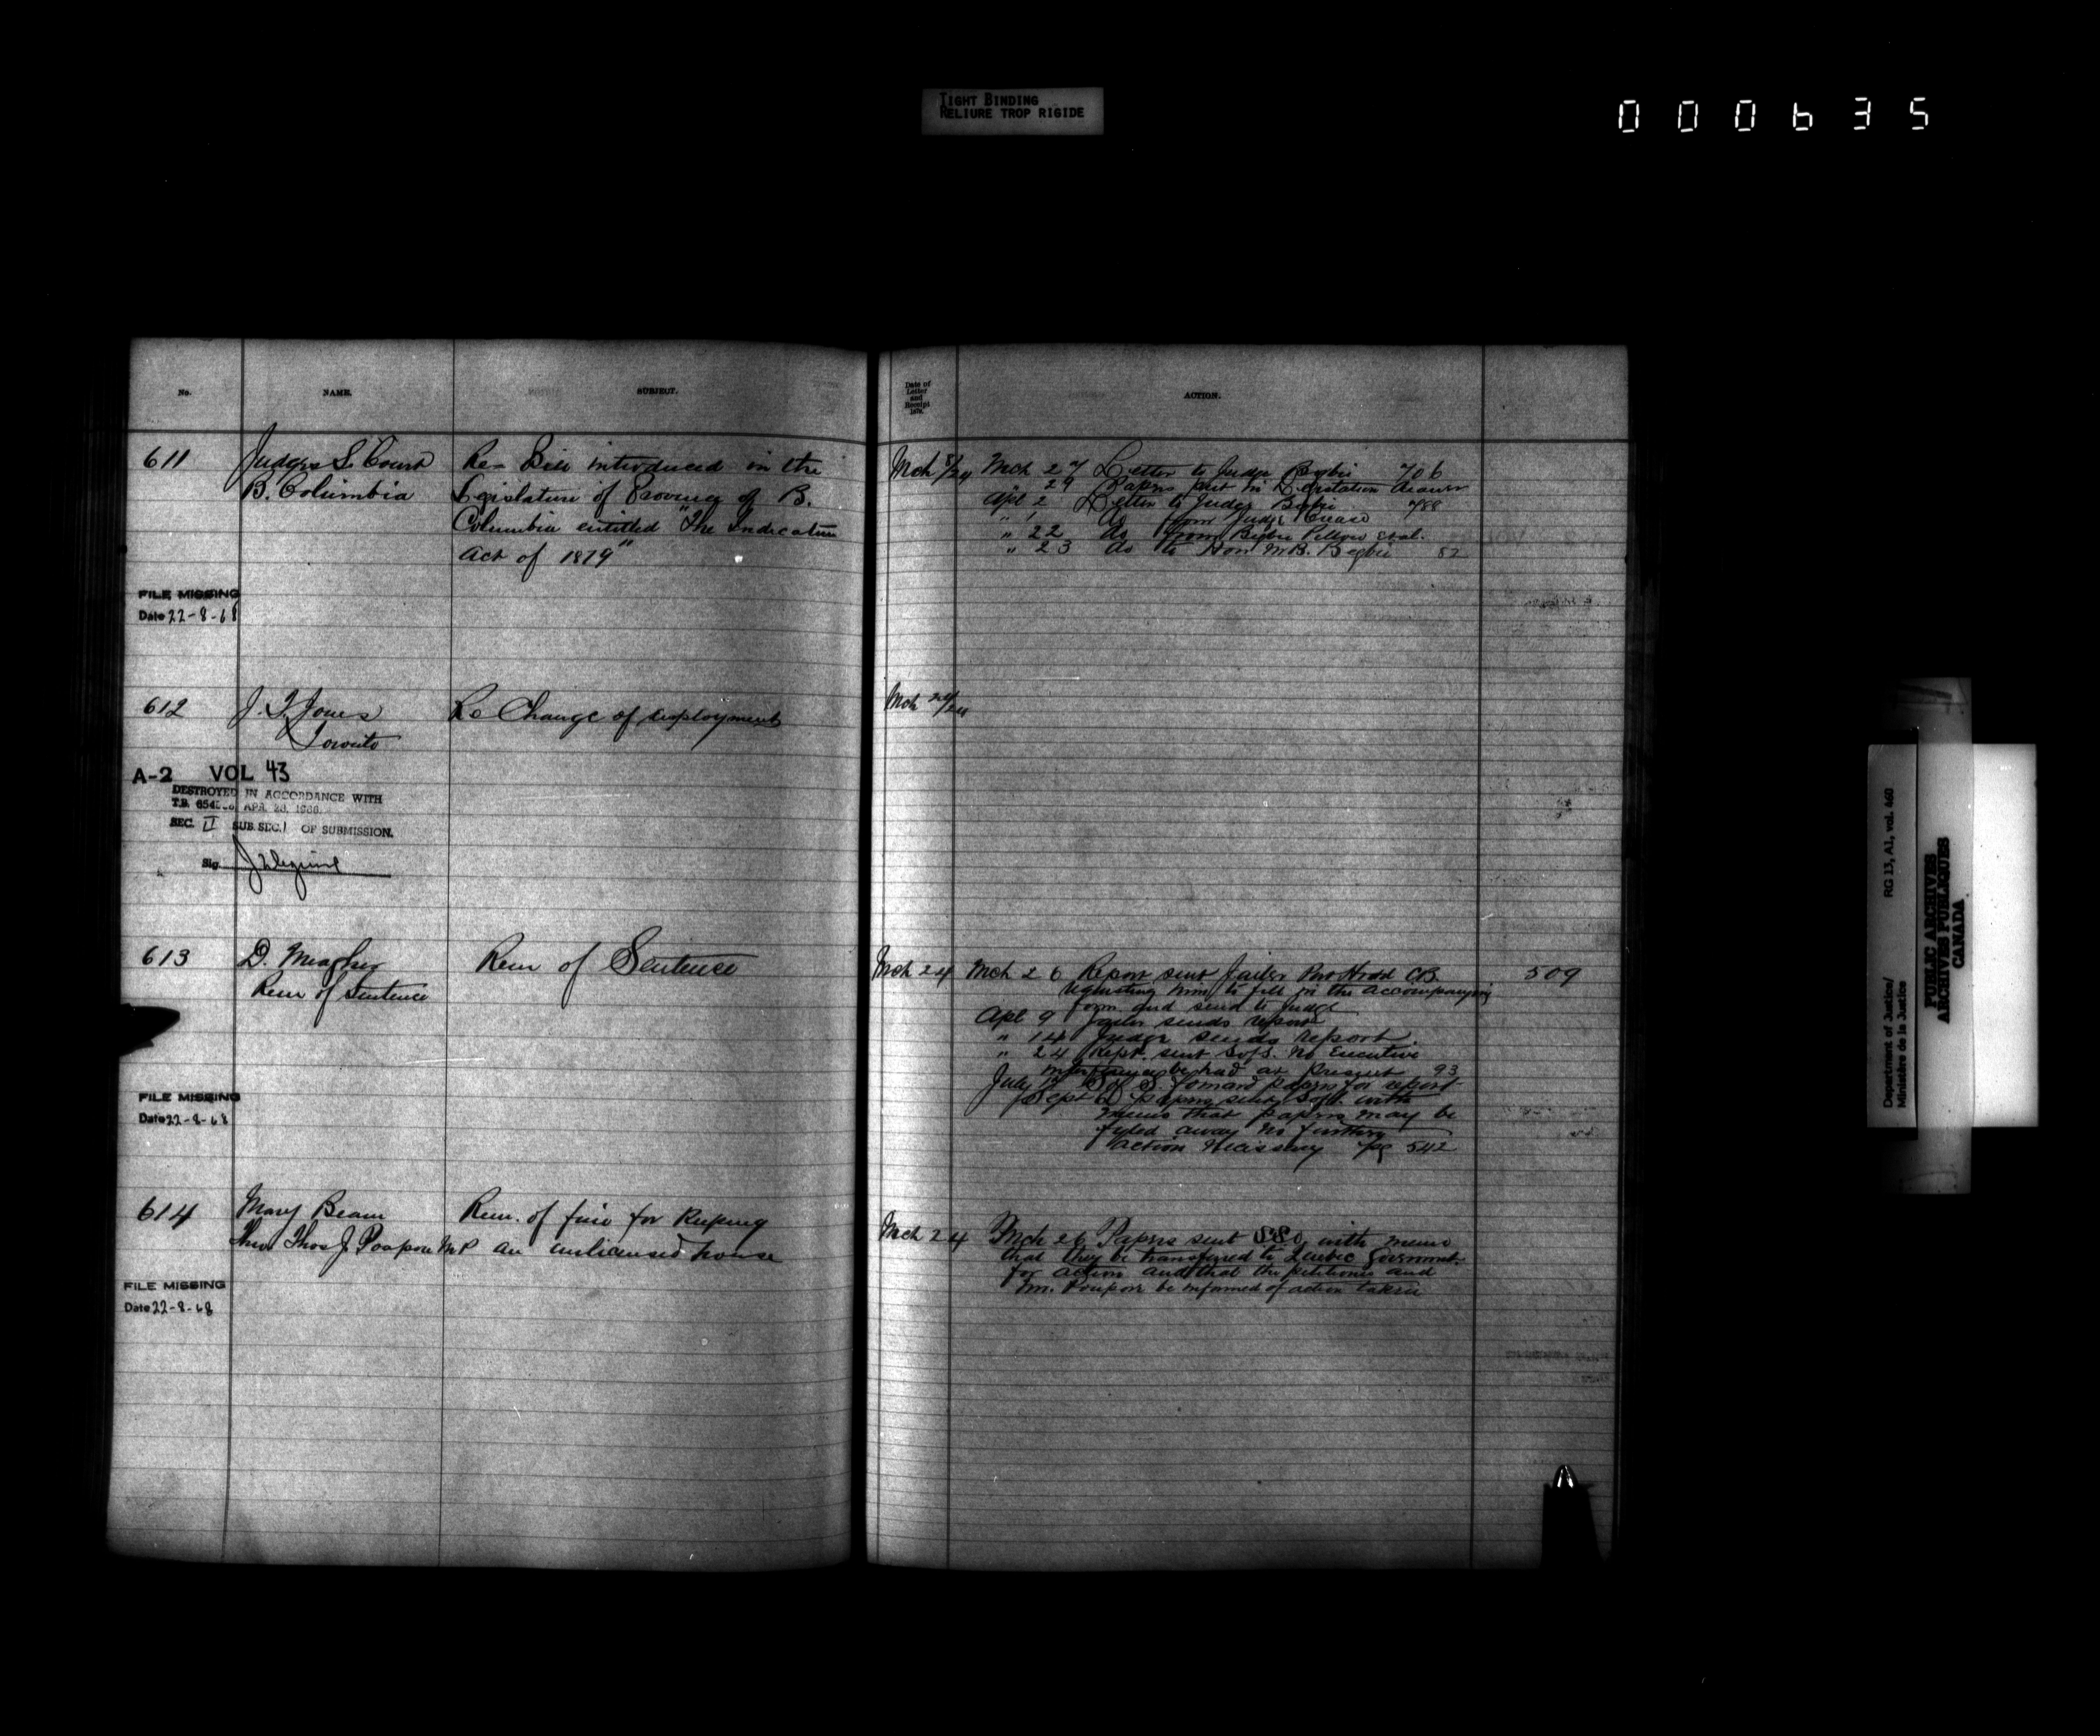 TIGHT BINDING
RELIURE TROP RIGIDE
000635
No.
NAME.
SUBJECT.
Date of
Letter
and
Receipt
1879.
ACTION.
611
Judges S. Court
B. Columbia
Re- Bill introduced in the
Legislature of Province of B.
Columbia entitled "The Judicature
Act of 1879"
Mch 8/24
Mch 27 Letter to Judge Begbie 706
" 29 Papers put in Legislation drawer
Apl 2 Letter to Judge Begbie 788
" 1 do from Judge Crease
" 22 do from Begbie et al.
" 23 do to Hon M.B. Begbie 82
FILE MISSING
Date 22-8-68
612
J. T. Jones
Toronto
Re Change of employment
Mch 24/24
A-2 VOL 43
DESTROYED IN ACCORDANCE WITH
T.B. APR. 28,
SEC. II SUB. SEC. 1 OF SUBMISSION.
Sig
613
D. Meagher
Rem of Sentence
Rem of Sentence
Mch 24
Mch 26 Report sent Jailer Port Hood CB 509
requesting him to fill in the accompanying
form and send to Judge
Apl 9 Jailer sends report
" 14 Judge sends report
" 24 Rept. sent SofS. No Executive
interference be had at present 93
July 12 S of S. forward papers for report
Sept papers sent SofS. with
memo that papers may be
fyled away no further
action necessary pg 542
FILE MISSING
Date 22-8-68
614
Mary Beam
thro Thos J. Poupore MP
Rem. of fine for keeping
an unlicensed house
Mch 24
Mch 26 Papers sent SSC, with memo
that they be transferred to Quebec Government
for action and that the petitioner and
Mr. Poupore be informed of action taken
FILE MISSING
Date 22-8-68
Department of Justice/
Ministère de la Justice
RG 13, A1, vol. 460
PUBLIC ARCHIVES
ARCHIVES PUBLIQUES
CANADA